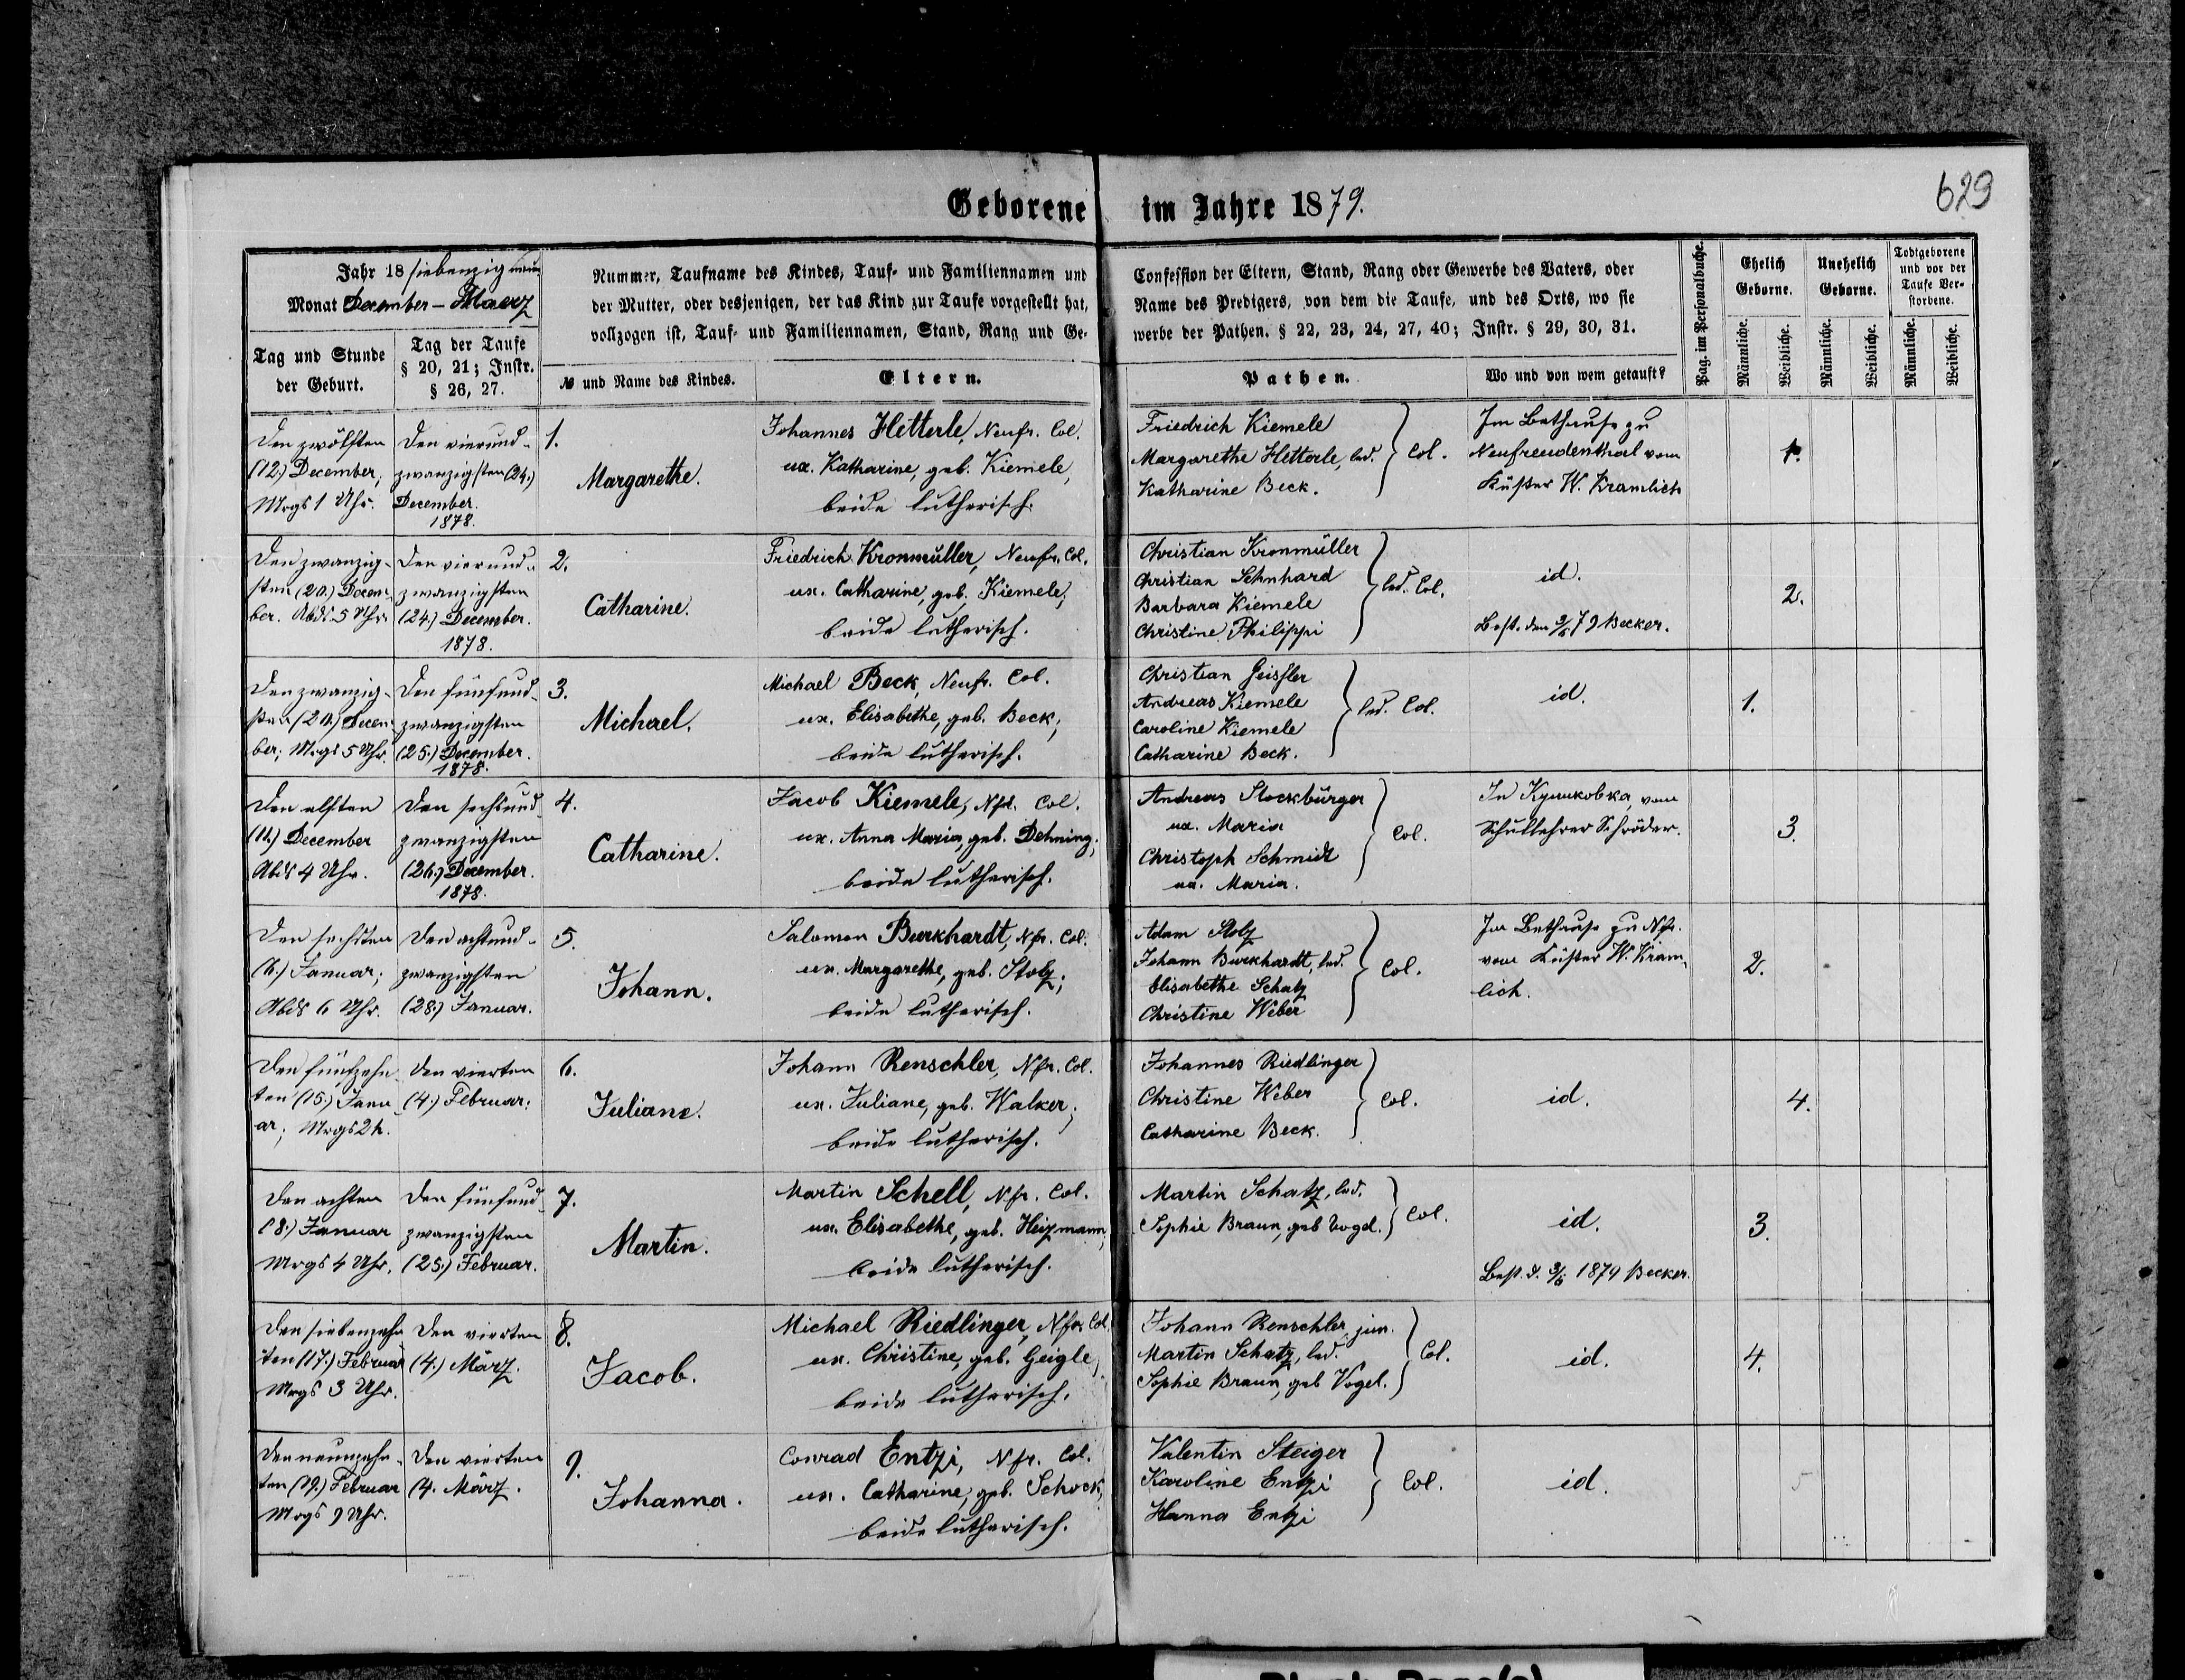 629
Geborene im Jahre 1879.
Jahr 18 siebenzig neun
Monat December – Maerz
Tag und Stunde
der Geburt.
Tag der Taufe
§ 20, 21; Instr.
§ 26, 27.
Nummer, Taufname des Kindes, Tauf- und Familiennamen und
der Mutter, oder desjenigen, der das Kind zur Taufe vorgestellt hat,
vollzogen ist, Tauf- und Familiennamen, Stand, Rang und Ge-
№ und Name des Kindes.
Eltern.
Confession der Eltern, Stand, Rang oder Gewerbe des Vaters, oder
Name des Predigers, von dem die Taufe, und des Orts, wo sie
werbe der Pathen. § 22, 23, 24, 27, 40; Instr. § 29, 30, 31.
Pathen.
Wo und von wem getauft?
Pag. im Personalbuche.
Ehelich
Geborne.
Unehelich
Geborne.
Todtgeborene
und vor der
Taufe Ver-
storbene.
Männliche.
Weibliche.
Männliche.
Weibliche.
Männliche.
Weibliche.
Den zwölften
(12.) December,
Mrgs 1 Uhr.
Den vierund-
zwanzigsten (24.)
December.
1878.
1.
Margarethe.
Johannes Hetterle, Neufr. Col.
ux. Katharine, geb. Kiemele,
beide lutherisch.
Friedrich Kiemele
Margarethe Hetterle, led.
Katharine Beck.
Col.
Im Bethause zu
Neufreudenthal vom
Küster W. Kramlich
1.
Den zwanzig-
sten (20.) Decem-
ber. Abds 5 Uhr.
Den vierund-
zwanzigsten
(24.) December.
1878.
2.
Catharine.
Friedrich Kronmüller, Neufr. Col.
ux. Catharine, geb. Kiemele,
beide lutherisch.
Christian Kronmüller
Christian Lehnhard
Barbara Kiemele
Christine Philippi
led. Col.
id.
Best. den 3/5 79 Becker.
2.
Den zwanzig-
sten (20.) Decem-
ber; Mrgs 5 Uhr.
Den fünfund-
zwanzigsten
(25.) December.
1878.
3.
Michael.
Michael Beck, Neufr. Col.
ux. Elisabethe, geb. Beck,
beide lutherisch.
Christian Geissler
Andreas Kiemele
Caroline Kiemele
Catharine Beck.
led. Col.
id.
1.
Den elften
(11.) December
Abds 4 Uhr.
Den sechsund-
zwanzigsten
(26.) December.
1878.
4.
Catharine.
Jacob Kiemele, Nfd. Col.
ux. Anna Maria, geb. Dehning,
beide lutherisch.
Andreas Stockbürger
ux. Maria
Christoph Schmidt
ux. Maria.
Col.
In Куликовка, vom
Schullehrer Schröder.
3.
Den sechsten
(6.) Januar;
Abds 6 Uhr.
Den achtund-
zwanzigsten
(28.) Januar.
5.
Johann.
Salomon Burkhardt, Nfr. Col.
ux. Margarethe, geb. Stolz;
beide lutherisch.
Adam Stolz
Johann Burkhardt, led.
Elisabethe Schatz
Christine Weber
Col.
Im Bethause zu Nfr.
vom Küster W. Kram-
lich.
2.
Den fünfzehn-
ten (15.) Janu-
ar; Mrgs 2 h.
Den vierten
(4.) Februar.
6.
Juliane.
Johann Renschler, Nfr. Col.
ux. Juliane, geb. Walker;
beide lutherisch.
Johannes Riedlinger
Christine Weber
Catharine Beck.
Col.
id.
4.
Den achten
(8.) Januar
Mrgs 4 Uhr.
Den fünfund-
zwanzigsten
(25.) Februar.
7.
Martin.
Martin Schell, Nfr. Col.
ux. Elisabethe, geb. Heizmann,
beide lutherisch.
Martin Schatz, led.
Sophie Braun, geb Vogel.
Col.
id.
Best. d. 3/5 1879 Becker.
3.
Den siebenzehn-
ten (17.) Februar
Mrgs 3 Uhr.
Den vierten
(4.) März.
8.
Jacob.
Michael Riedlinger, Nfr. Col.
ux. Christine, geb. Geigle,
beide lutherisch.
Johann Renschler jun.
Martin Schatz, led.
Sophie Braun, geb Vogel.
Col.
id.
4.
Den neunzehn-
ten (19.) Februar
Mrgs 9 Uhr.
Den vierten
(4. März.
9.
Johanna.
Conrad Entzi, Nfr. Col.
ux. Catharine, geb. Schock,
beide lutherisch.
Valentin Steiger
Karoline Entzi
Hanna Entzi
Col.
id.
5